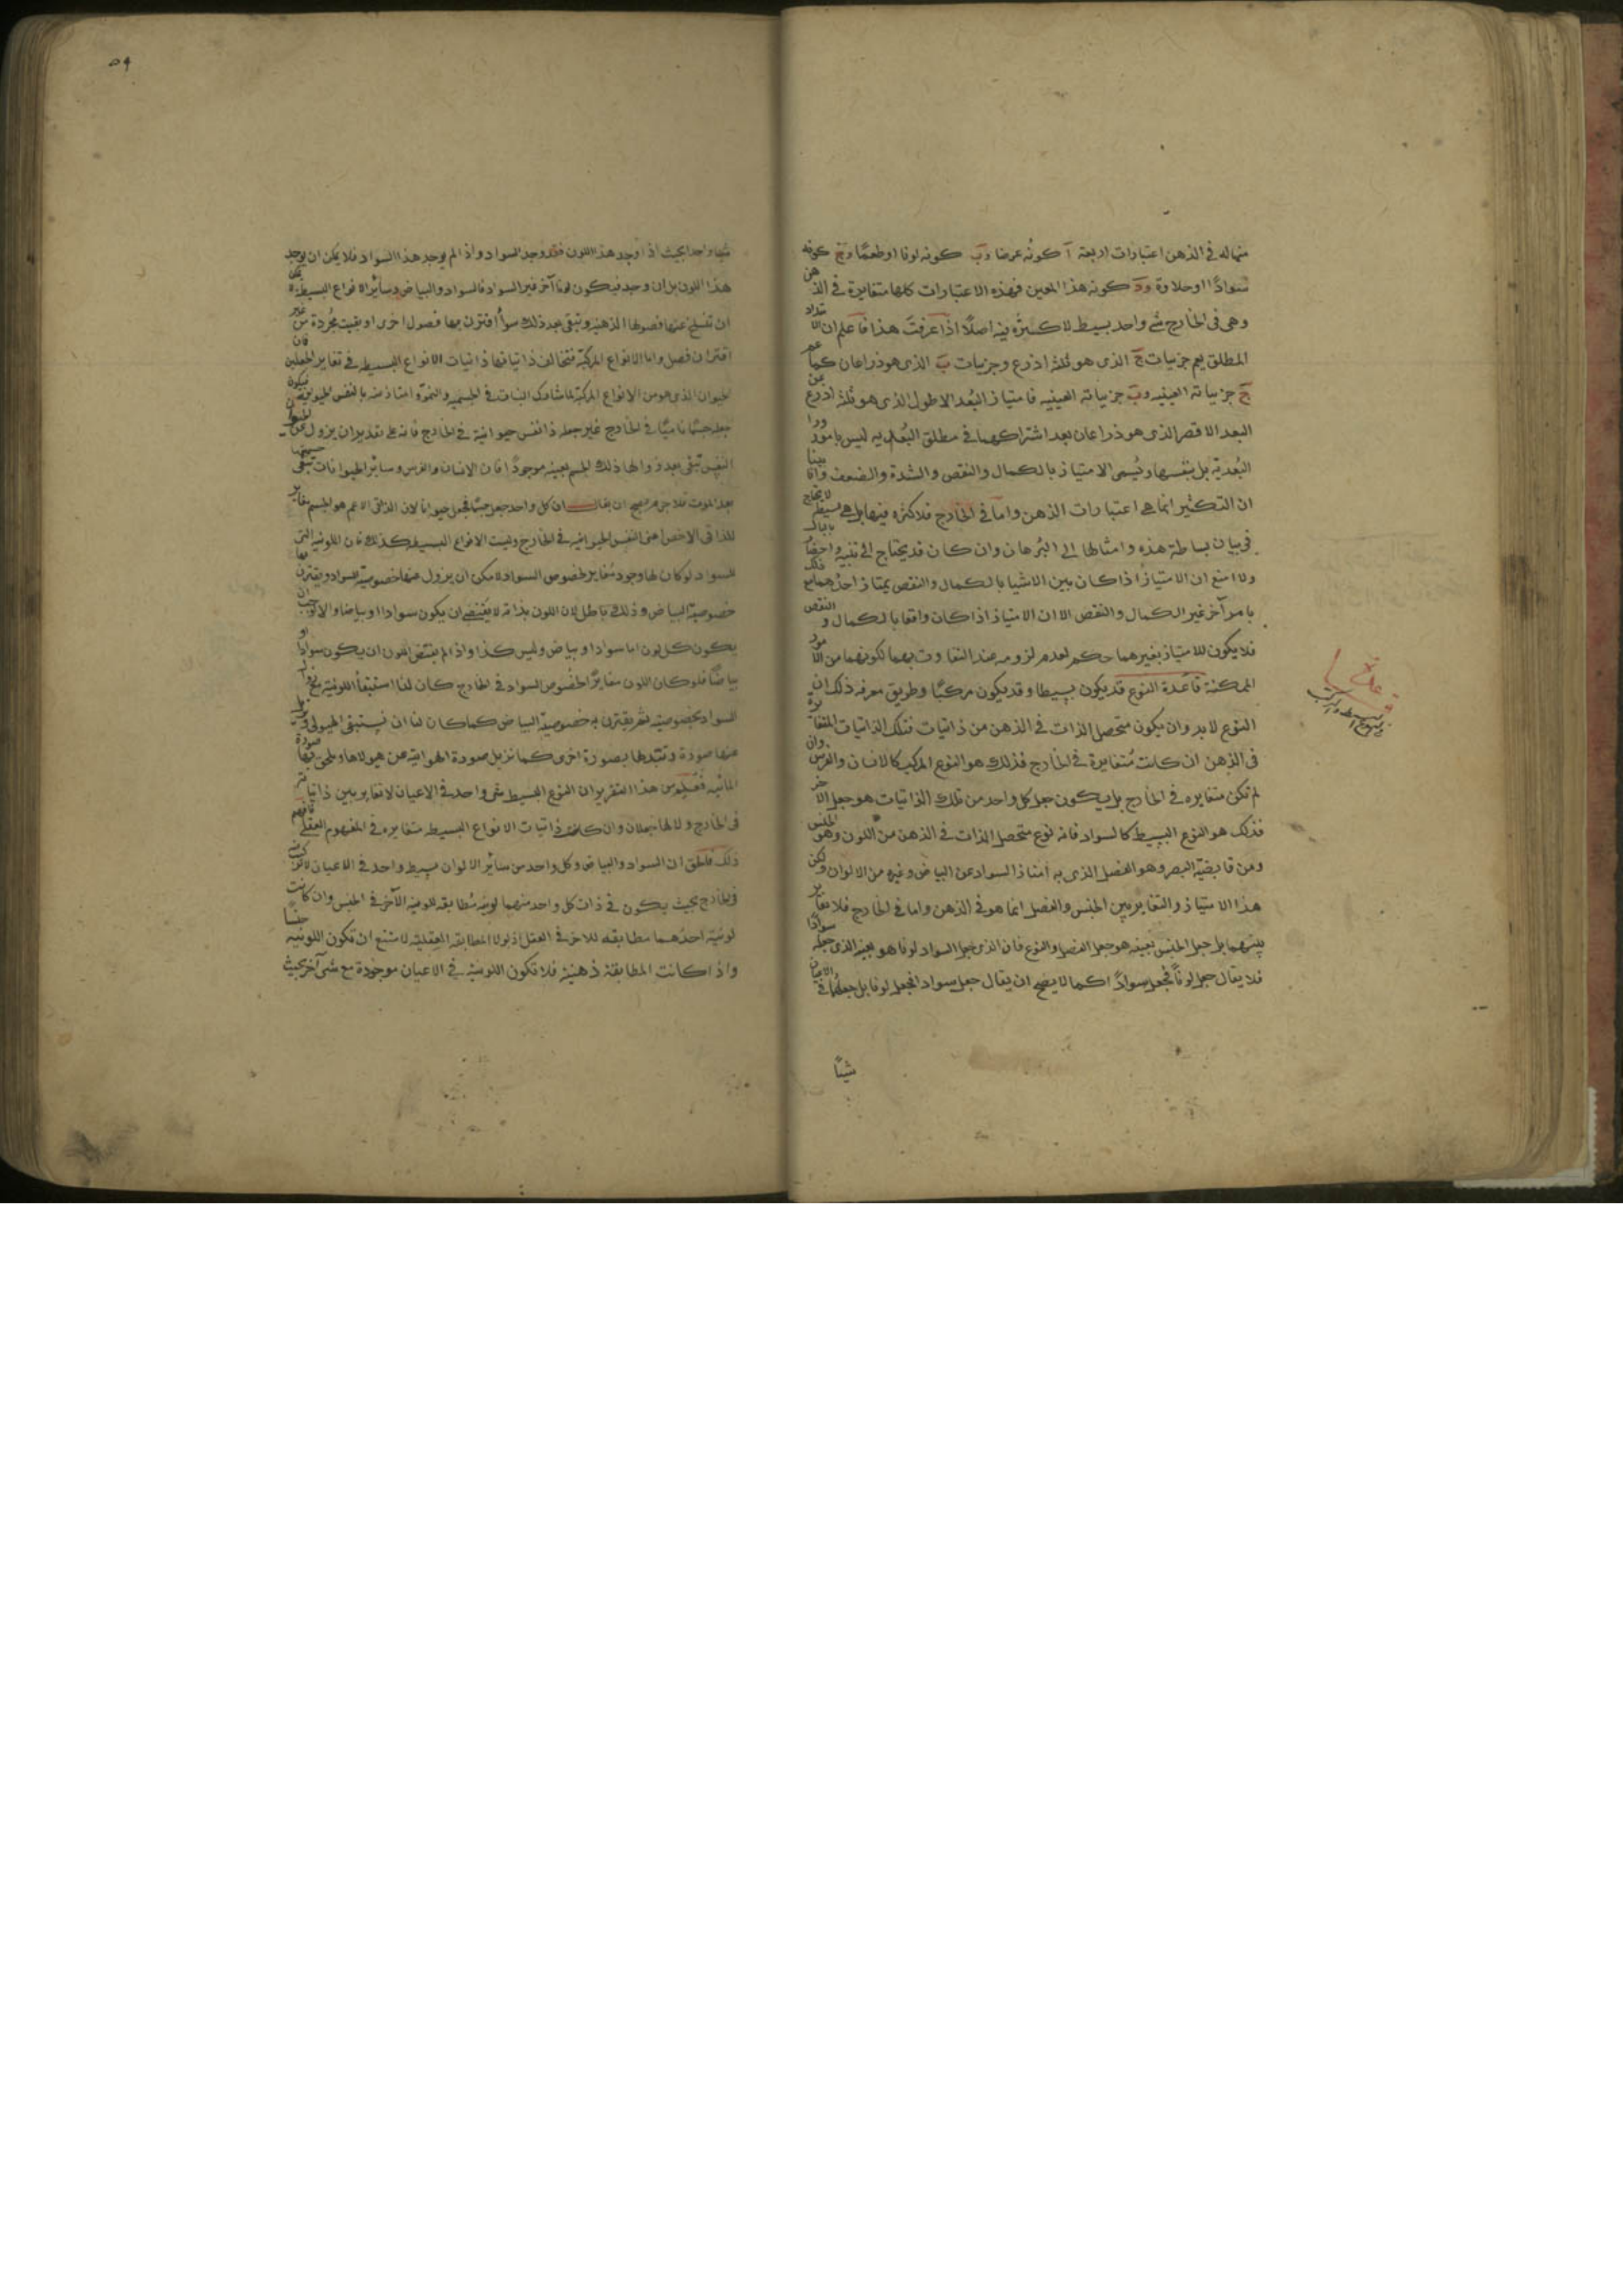 منها له فى الذهن اعتبارات اربعة آ كونُه عرضا وب كونه لونا او طعمًا وج كونه
سوادًا او حلاوة ود كونه هذا المعين فهذه الاعتبارات كلها متغايرة فى الذهن
وهى فى الخارج شئ واحد بسيط لا كثرة فيه اصلًا اذا عرفتَ هذا فاعلم ان الامتداد
المطلق يعم جزئيات ج الذى هو ثلثة اذرع وجزئيات ب الذى هو ذراعان كما عم
ج جزئياته العينيه وب جزئياته العينيه فامتياز البُعد الاطول الذى هو ثلثة اذرع عن
البعد الاقصر الذى هو ذراعان بعد اشتراكهما فى مطلق البُعديه ليس بامور ورا
البُعديّة بل بنفسها ويُسمى الامتياز بالكمال والنقص والشدة والضعف واذا بينا
ان التكثير انما هى اعتبارات الذهن واما فى الخارج فلا كثره فيها بل هى بسيطه لا يحتاج
فى بيان بساطة هذه وامثالها الى البُرهان وان كان قد يحتاج الى تنبيه واخطار بالبال
ولا امنع ان الامتيازُ اذا كان بين الاشيا بالكمال والنقص يمتاز احدُهما مع ذلك
بامر آخر غير الكمال والنقص الا ان الامتياز اذا كان واقعا بالكمال والنقص
فلا يكون للامتياز بغيرهما حكم لعدم لزومه عند التفاوت بهما لكونهما من الامور
الممكنة قاعدة النوع قد يكون بسيطا وقد يكون مركبًا وطريق معرفه ذلك ان
النوع لا بد وان يكون متحصل الذات فى الذهن من ذاتيات فتلك الذاتيات المتغايرة
فى الذهن ان كانت مُتغايرة فى الخارج فذلك هو النوع المركب كالانسان والفرس وان
لم تكن متغايره فى الخارج بل يكون جعل كل واحد من تلك الذاتيات هو جعل الآخر
فذلك هو النوع البسيط كالسواد فانه نوع متحصل الذات فى الذهن من اللون وهو الجنس
ومن قابضيّة البصر وهو الفصل الذى به امتاز السواد عن البياض وغيره من الالوان ولكن
هذا الامتياز والتغاير بين الجنس والفصل انما هو فى الذهن واما فى الخارج فلا تغاير
بينهما بل جعل الجنس بعينه هو جعل الفصل والنوع فان الذى جعل السواد لونا هو بعينه الذى جعله سوادًا
فلا يقال جعل لونًا فجعل سوادًا كما لا يصح ان يقال جعل سوادا فجعل لونا بل جعلهما فى الاعيان
شيئًا
قاعدة
فى النوع البسيط والمركب
٥٩
شيئا واحدا بحيث اذا وجد هذا اللون فقد وجد السواد واذا لم يوجد هذا السواد فلا يمكن ان يوجد
هذا اللون بل ان وجد فيكون لونا آخر غير السواد فالسواد والبياض وسائر الانواع البسيطة لا يمكن
ان تنسلخ عنها فصولها الذهنية وتبقى بعد ذلك سوآ اقترن بها فصول اخرى او بقيت مجُردة من غير
اقتران فصل واما الانواع المركبة فتخالف ذاتياتها ذاتيات الانواع البسيطه فى تغاير الجعلين فان
الحيوان الذى هو من الانواع المركبة لما شارك النبات فى الجسميه والنموّ وامتاز عنه بالنفس الحيوانية فيكون
جعله جسمًا ناميًا فى الخارج غير جعله ذا نفس حيوانية فى الخارج فانه على تقدير ان يزول عن
النفس تبقى بعد زوالها ذلك الجسم بعينه موجودًا فان الانسان والفرس وسائر الحيوانات تبقى جسميتها
بعد الموت فلا جرم صح ان يقال ان كل واحد جعل جسمًا فجعل حيوانا لان الذاتى الاعم هو الجسم مغاير
للذاتى الاخص اعنى النفس الحيوانيه فى الخارج وليست الانواع البسيطه كذلك فان اللونيه التى
للسواد لو كان لها وجود مُغاير لخصوص السواد لامكن ان يزول عنها خصوصية السواد ويقترن بها
خصوصية البياض وذلك باطل لان اللون بذاته لا يقتضى ان يكون سوادا او بياضا والا لوجب ان
يكون كل لون اما سوادا او بياض وليس كذا واذا لم يقتض اللون ان يكون سوادا او
بياضًا فلو كان اللون مغايرًا لخُصوص السواد فى الخارج كان لنا استبقاُ اللونية
السواد بخصوصيته ثم يقترن به خصوصية البياض كما كان لنا ان نستبقى الهيولى
عنها صورة ونبدلها بصورة اخرى كما نزيل صورة الهوائيه عن هيولاها ونلحق بها صورة
المائيه فعُلم من هذا التقرير ان النوع البسيط شى واحد فى الاعيان لا تغاير بين ذاتياته
فى الخارج ولا لها جعلان وان كانت ذاتيات الانواع البسيطه متغايره فى المفهوم العقلى فافهم
ذلك فاطلق ان السواد والبياض وكل واحد من سائر الالوان بسيط واحد فى الاعيان لا تركيب
فى الخارج بحيث يكون فى ذات كل واحد منهما لونية مُطابقه للونية الآخر فى الجنس وان كانت
لونيّة احدُهما مطابقه للاخر فى العقل اذ لولا المطابقه العقليه لامتنع ان تكون اللونيه جنسًا
واذا كانت المطابقة ذهنية فلا تكون اللونية فى الاعيان موجودة مع شى آخر بحيث